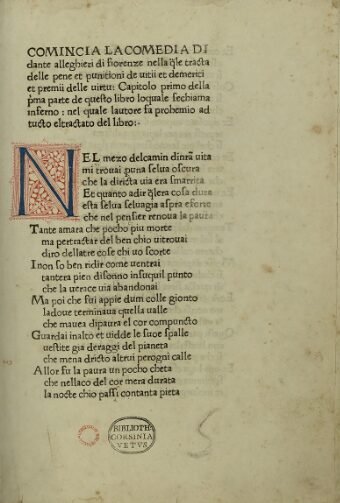 COMINCIA LACOMEDIA DI
dante alleghieri di fiorenze nella q̃le tracta
delle pene et punitioni de uitii et demeriti
et premii delle uirtu: Capitolo primo della
p̃ma parte de questo libro loquale sechiama
inferno: nel quale lautore fa prohemio ad
tucto eltractato del libro:·
NEL mezo delcamin dinr̃a uita
mi trouai puna selua oscura
che la diricta uia era smarrita
Et quanto adir q̃lera cosa dura
esta selua seluagia aspra eforte
che nel pensier renoua la paura
Tante amara che pocho piu morte
ma pertractar del ben chio uitrouai
diro dellatre cose chi uo scorte
I non so ben ridir come uentrai
tantera pien disonno insuquil punto
che la uerace uia abandonai
Ma poi che fui appie dum colle gionto
ladoue terminaua quella ualle
che mauea dipaura el cor compuncto
Guardai inalto et uidde le suoe spalle
uestite gia deraggi del pianeta
che mena dricto altrui perogni calle
Allor fu la paura un pocho cheta
che nellaco del cor mera durata
la nocte chio passi contanta pieta
BIBLIOTH.
CORSINIA
VETUS